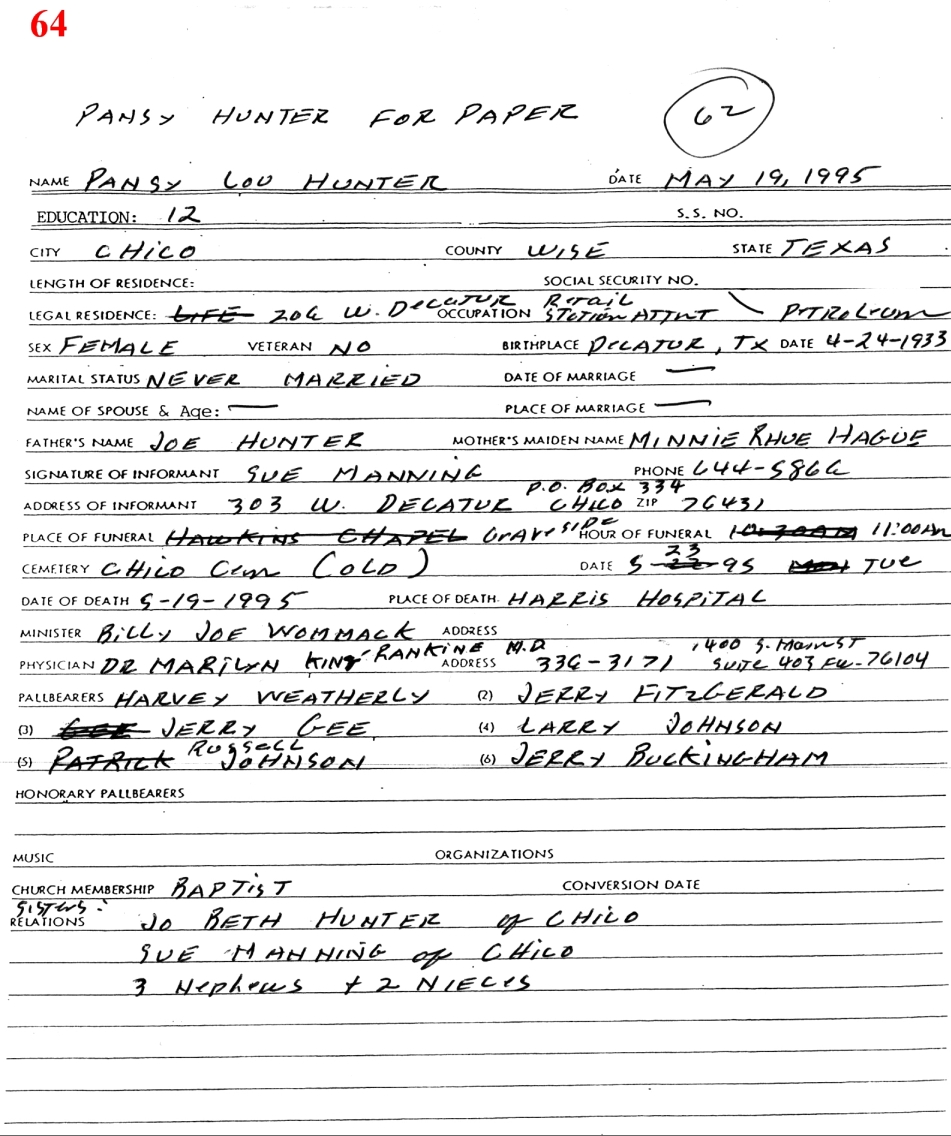 64
PANSY HUNTER FOR PAPER 62
NAME PANSY LOU HUNTER DATE MAY 19, 1995
EDUCATION: 12 S.S. NO.
CITY CHICO COUNTY WISE STATE TEXAS
LENGTH OF RESIDENCE: SOCIAL SECURITY NO.
LEGAL RESIDENCE: LIFE 206 W. DECATUR OCCUPATION Retail Station ATTNT \ PETROLeum
SEX FEMALE VETERAN NO BIRTHPLACE DECATUR, TX DATE 4-24-1933
MARITAL STATUS NEVER MARRIED DATE OF MARRIAGE —
NAME OF SPOUSE & Age: — PLACE OF MARRIAGE —
FATHER'S NAME JOE HUNTER MOTHER'S MAIDEN NAME MINNIE RHUE HAGUE
SIGNATURE OF INFORMANT SUE MANNING PHONE 644-5866
ADDRESS OF INFORMANT 303 W. DECATUR P.O. BOX 334 CHICO ZIP 76431
PLACE OF FUNERAL HAWKINS CHAPEL GraveSIDE HOUR OF FUNERAL 10:30AM 11:00Am
CEMETERY CHICO Cem (OLD) DATE 5-22 23-95 MON TUE
DATE OF DEATH 5-19-1995 PLACE OF DEATH. HARRIS HOSPITAL
MINISTER BILLY JOE WOMMACK ADDRESS
PHYSICIAN DR MARILYN KING-RANKINE M.D ADDRESS 336-3171 1400 S. Main ST SUITE 403 FW-76104
PALLBEARERS HARVEY WEATHERLY (2) JERRY FITZGERALD
(3) GEE JERRY GEE (4) LARRY JOHNSON
(5) PATRICK RUSSELL JOHNSON (6) JERRY BUCKINGHAM
HONORARY PALLBEARERS
MUSIC ORGANIZATIONS
CHURCH MEMBERSHIP BAPTIST CONVERSION DATE
SISTERS:
RELATIONS JO BETH HUNTER of CHICO
SUE MANNING of CHICO
3 Nephews + 2 NIECES